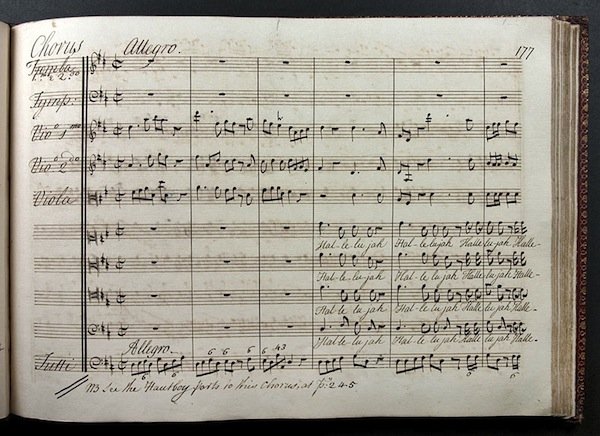 Chorus Allegro. 177
Tromba
1ma 2.do
Tymp:
Vio.o 1mo
Vio.o 2.do
Viola
Hal-le lu jah Hal-le lujah Halle lu jah Halle-
Hal-le lu jah Hal-le lujah Halle lu jah Halle-
Hal-le lu jah Hal-le lujah Halle lu jah Halle-
Hal-le lu jah Hal-le lujah Halle lu jah Halle-
Allegro.
6 6 6 6 43
Tutti
6 6
NB See the Hautboy parts to this Chorus, at p: 245